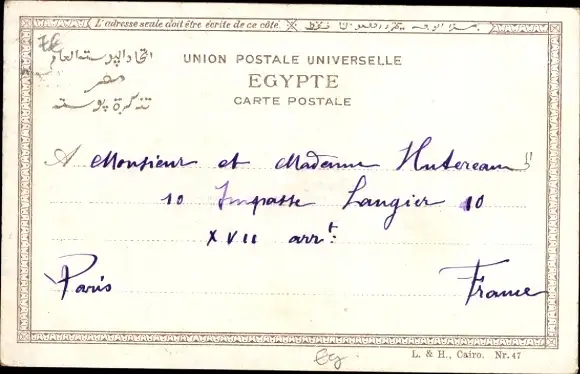 L'adresse seule doit être écrite de ce côté.
اتحاد البوسته العام
مصر
تذكرة بوسته
UNION POSTALE UNIVERSELLE
EGYPTE
CARTE POSTALE
A Monsieur et Madame Hutereau
10 Impasse Langier 10
XVII arrt:
Paris France
Eg
L. & H., Cairo. Nr. 47